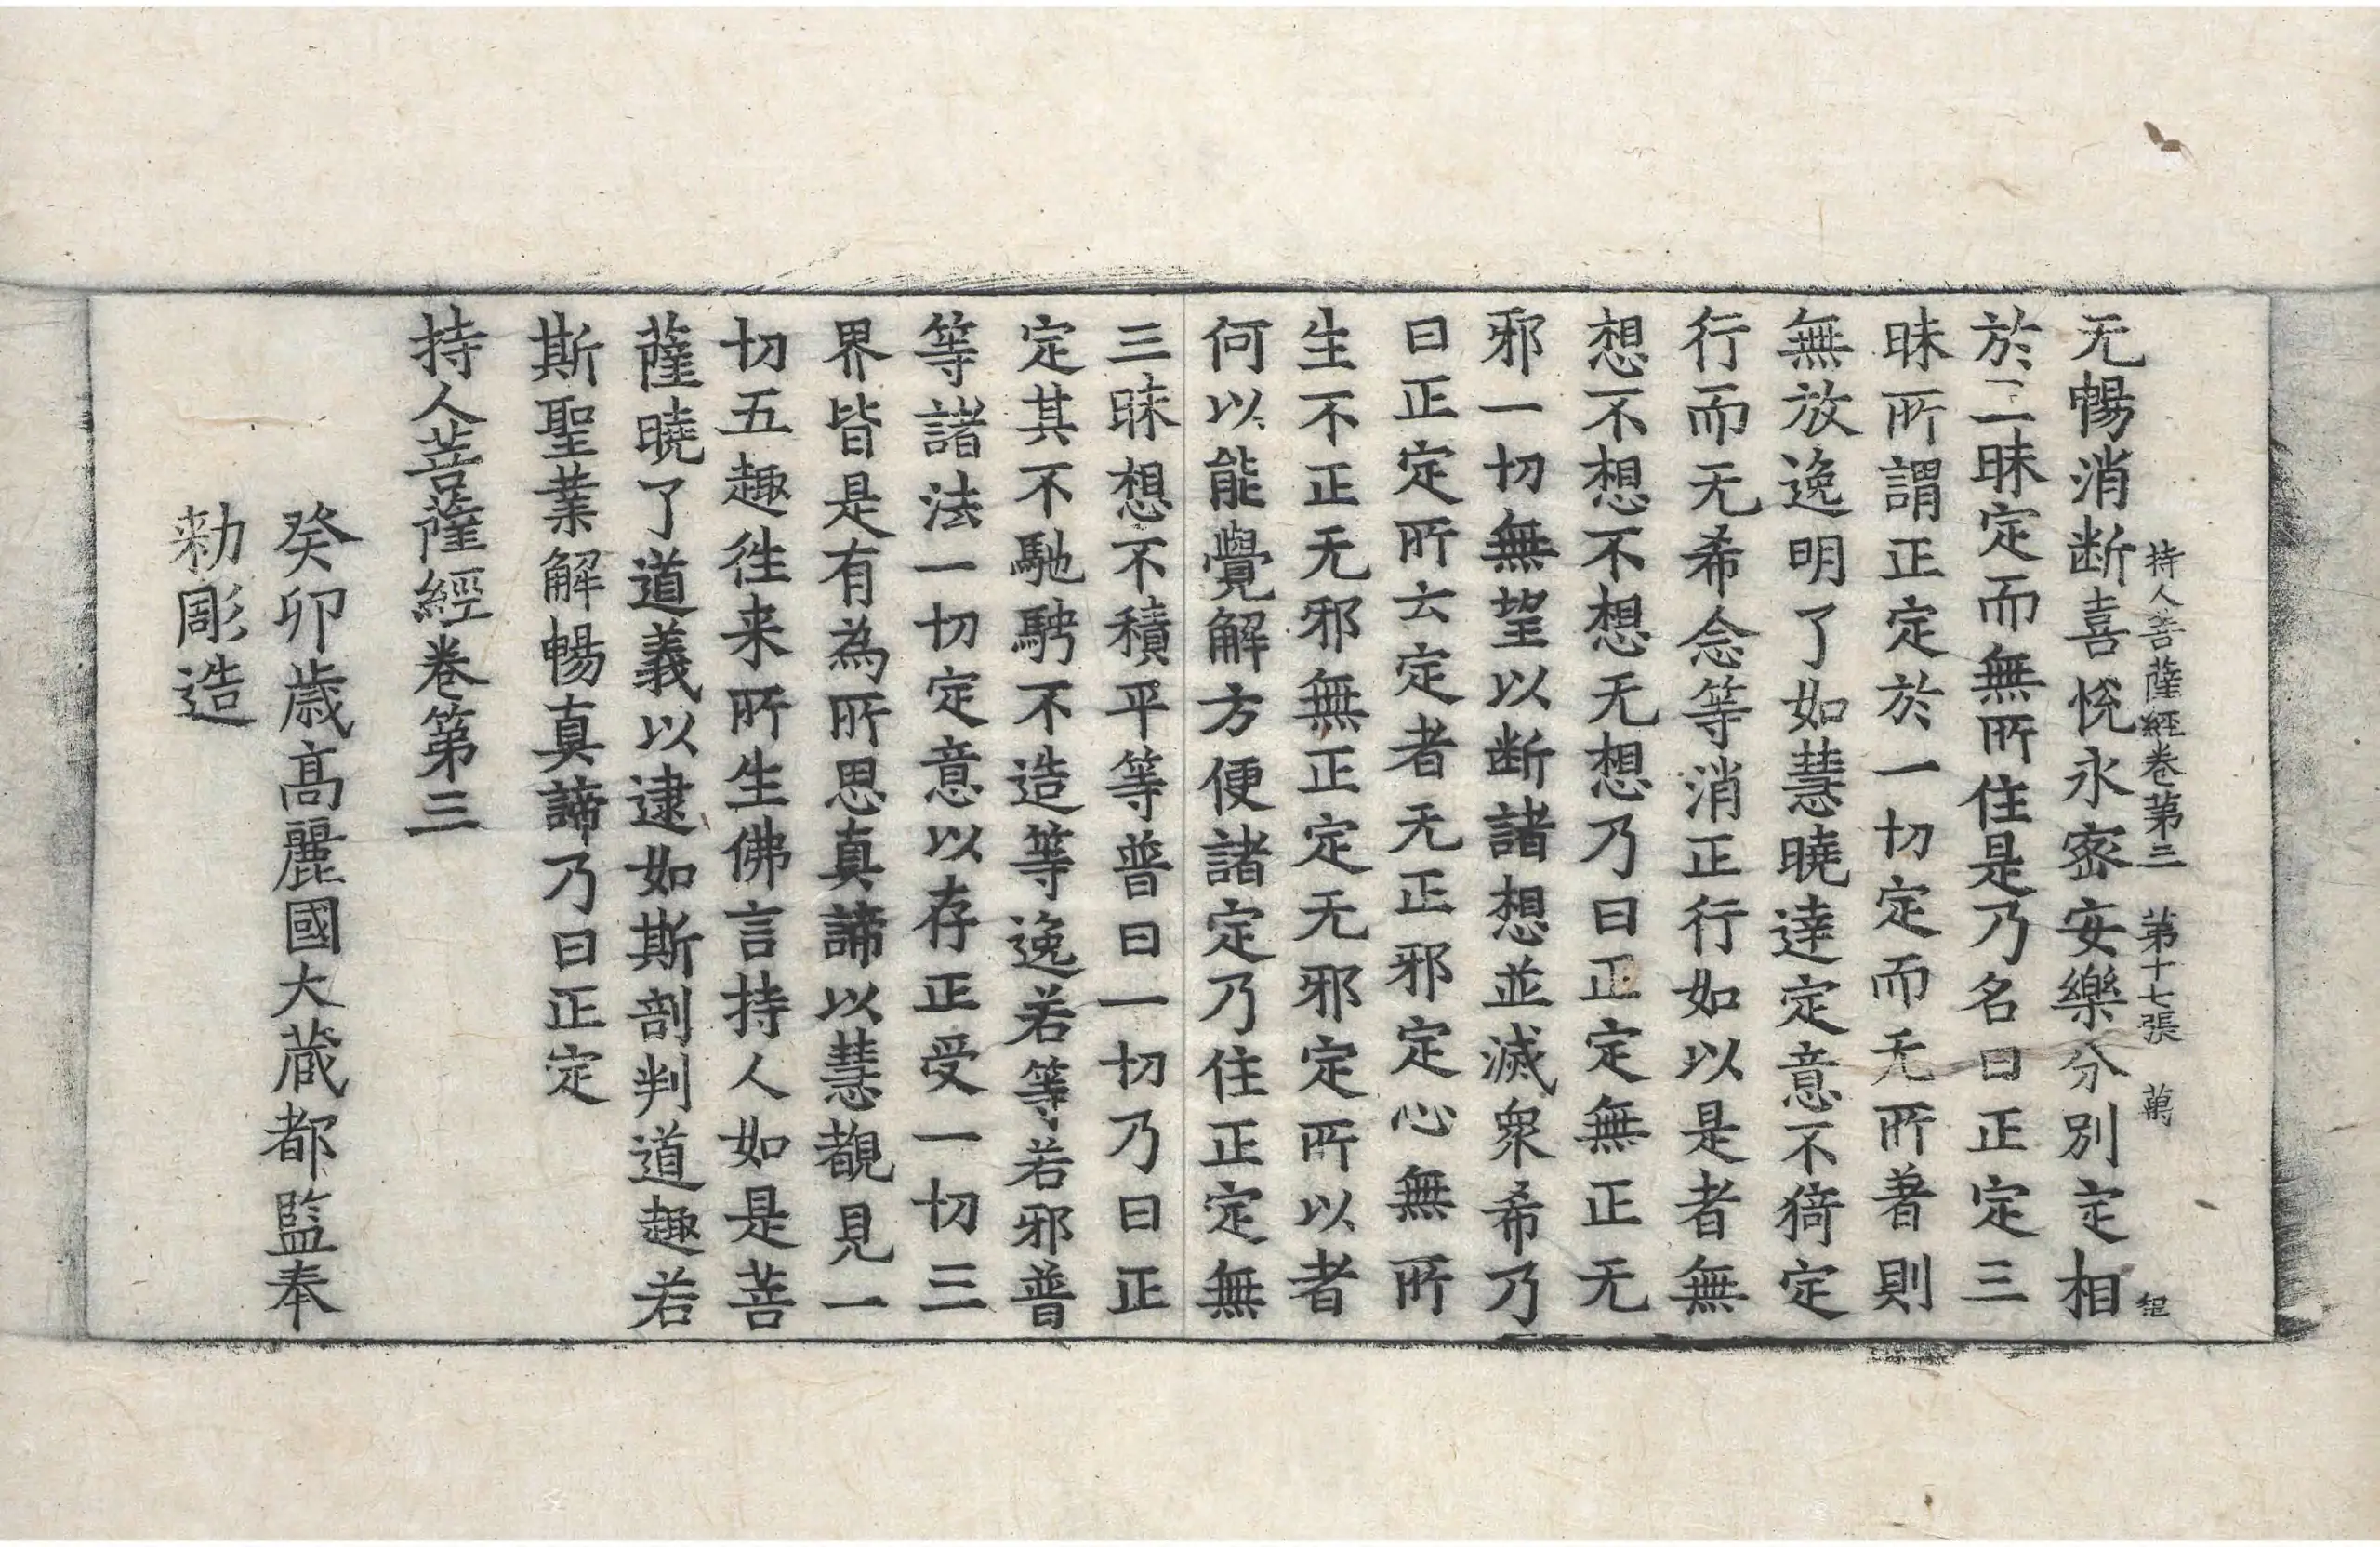 持人菩薩經卷第三 第十七張 萬
无暢消断喜悅永宻安樂分別定相
於二昧定而無所住是乃名曰正定三
昧所謂正定於一切定而无所著則
無放逸明了如慧曉達定意不猗定
行而无希念等消正行如以是者無
想不想不想无想乃曰正定無正无
邪一切無望以断諸想並滅衆希乃
曰正定所云定者无正邪定心無所
生不正无邪無正定无邪定所以者
何以能覺解方便諸定乃住正定無
三昧想不積平等普曰一切乃曰正
定其不馳騁不造等逸若等若邪普
等諸法一切定意以存正受一切三
界皆是有為所思真諦以慧覩見一
切五趣徃来所生佛言持人如是菩
薩曉了道義以逮如斯剖判道趣若
斯聖業解暢真諦乃曰正定
持人菩薩經卷第三
癸卯歲高麗國大藏都監奉
勑彫造